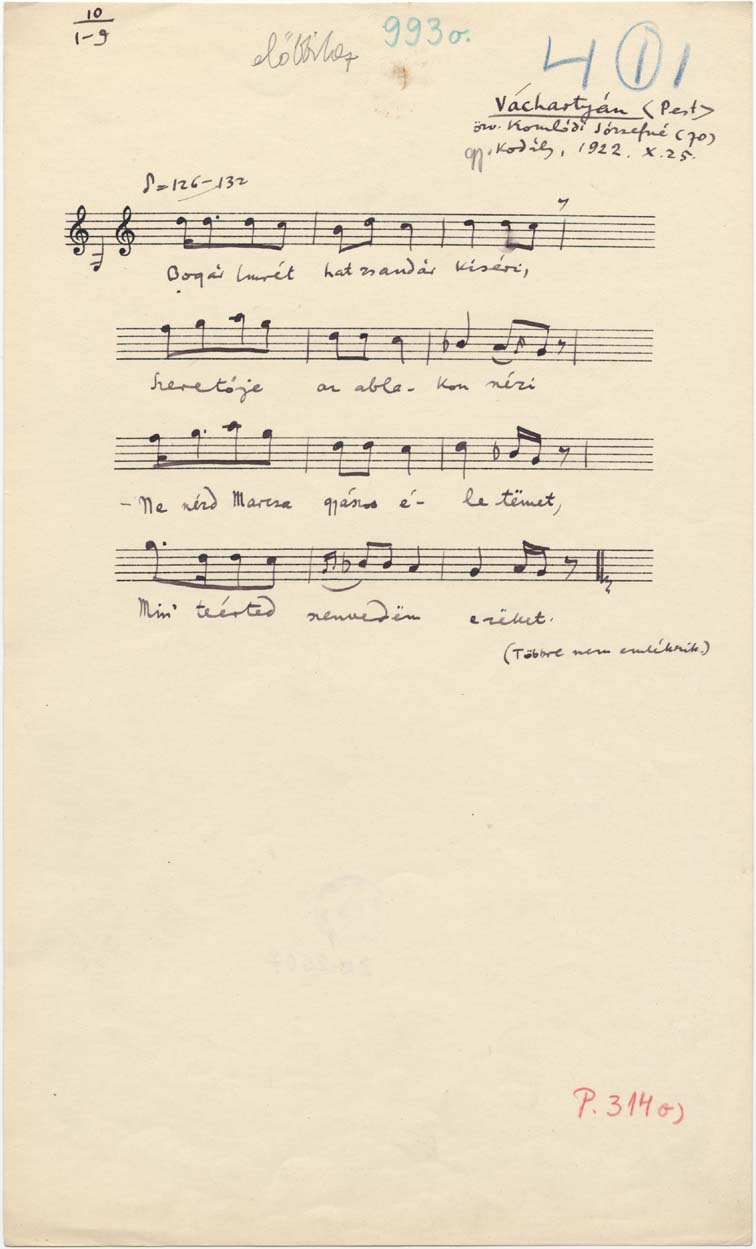 10
1-9
előbbihez
993o.
4 1 1
Váchartyán (Pest)
özv. Komlódi Józsefné (70)
gy. Kodály, 1922. X. 25.
♪=126-132
Bogár Imrét hat zsandár kiséri,
Szeretője az abla- kon nézi
- Ne nézd Marcsa gyászos é- le tëmet,
Min' teérted szenvedëm ezëket.
(Többre nem emlékszik.)
P. 314 o)